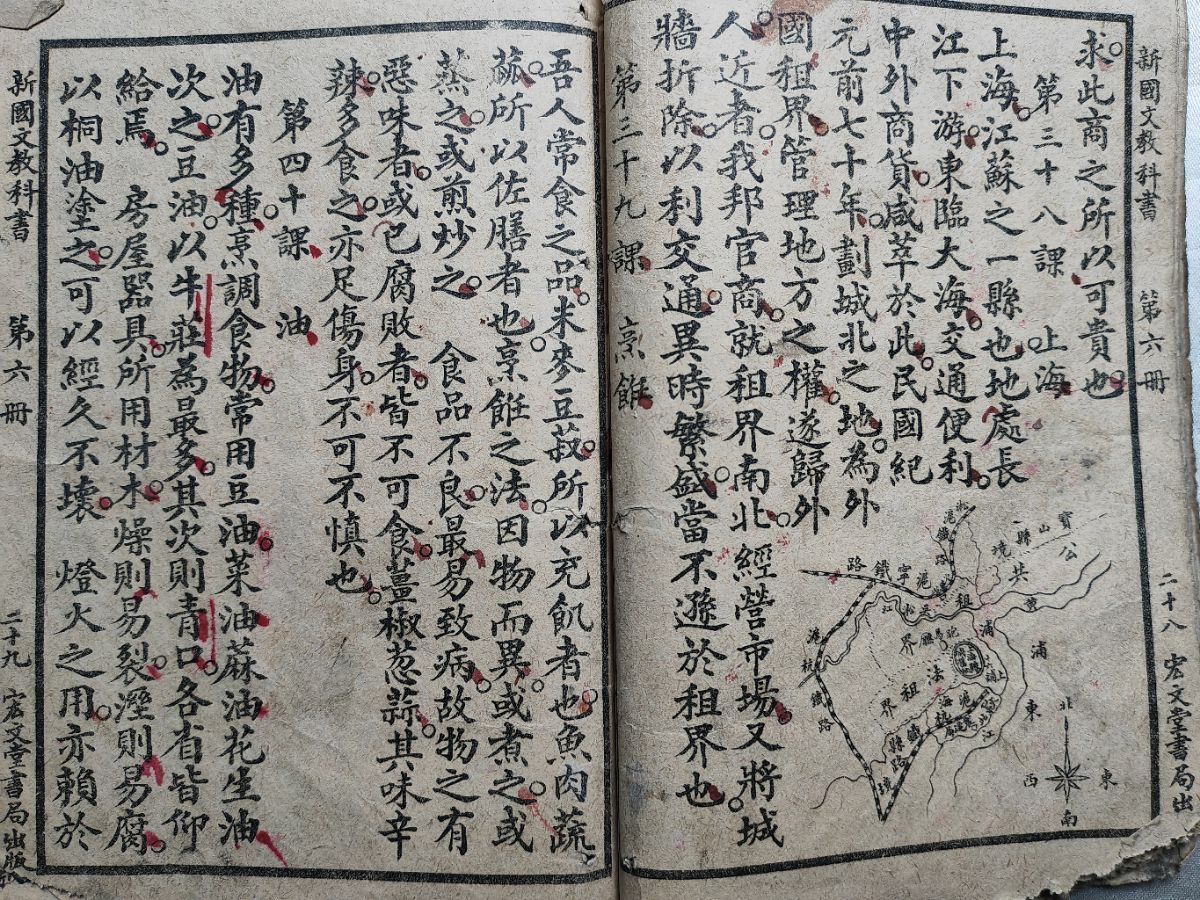 新國文教科書 第六冊 二十八 宏文堂書局出
求此商之所以可貴也。
第三十八課 上海
上海。江蘇之一縣也。地處長
江下游。東臨大海。交通便利。
中外商貨。咸萃於此。民國紀
元前七十年。劃城北之地。為外
國租界。管理地方之權。遂歸外
人。近者我邦官商。就租界南北。經營市場。又將城
牆折除。以利交通。異時繁盛。當不遜於租界也。
第三十九課 烹飪
寶山縣境
公共租界
滬寧鐵路
吳淞江
法租界
滬杭鐵路
上海縣境
黃浦江
浦東
北
東
西
南
吾人常食之品。米麥豆菽。所以充飢者也。魚肉蔬
蓏。所以佐膳者也。烹飪之法。因物而異。或煮之。或
蒸之。或煎炒之。 食品不良。最易致病。故物之有
惡味者。或已腐敗者。皆不可食。薑椒葱蒜。其味辛
辣。多食之。亦足傷身。不可不慎也。
第四十課 油
油有多種。烹調食物。常用豆油。菜油蔴油花生油
次之。豆油。以牛莊為最多。其次則青口。各省皆仰
給焉。 房屋器具。所用材木。燥則易裂。溼則易腐。
以桐油塗之。可以經久不壞。 燈火之用。亦賴於
新國文教科書 第六冊 二十九 宏文堂書局出版